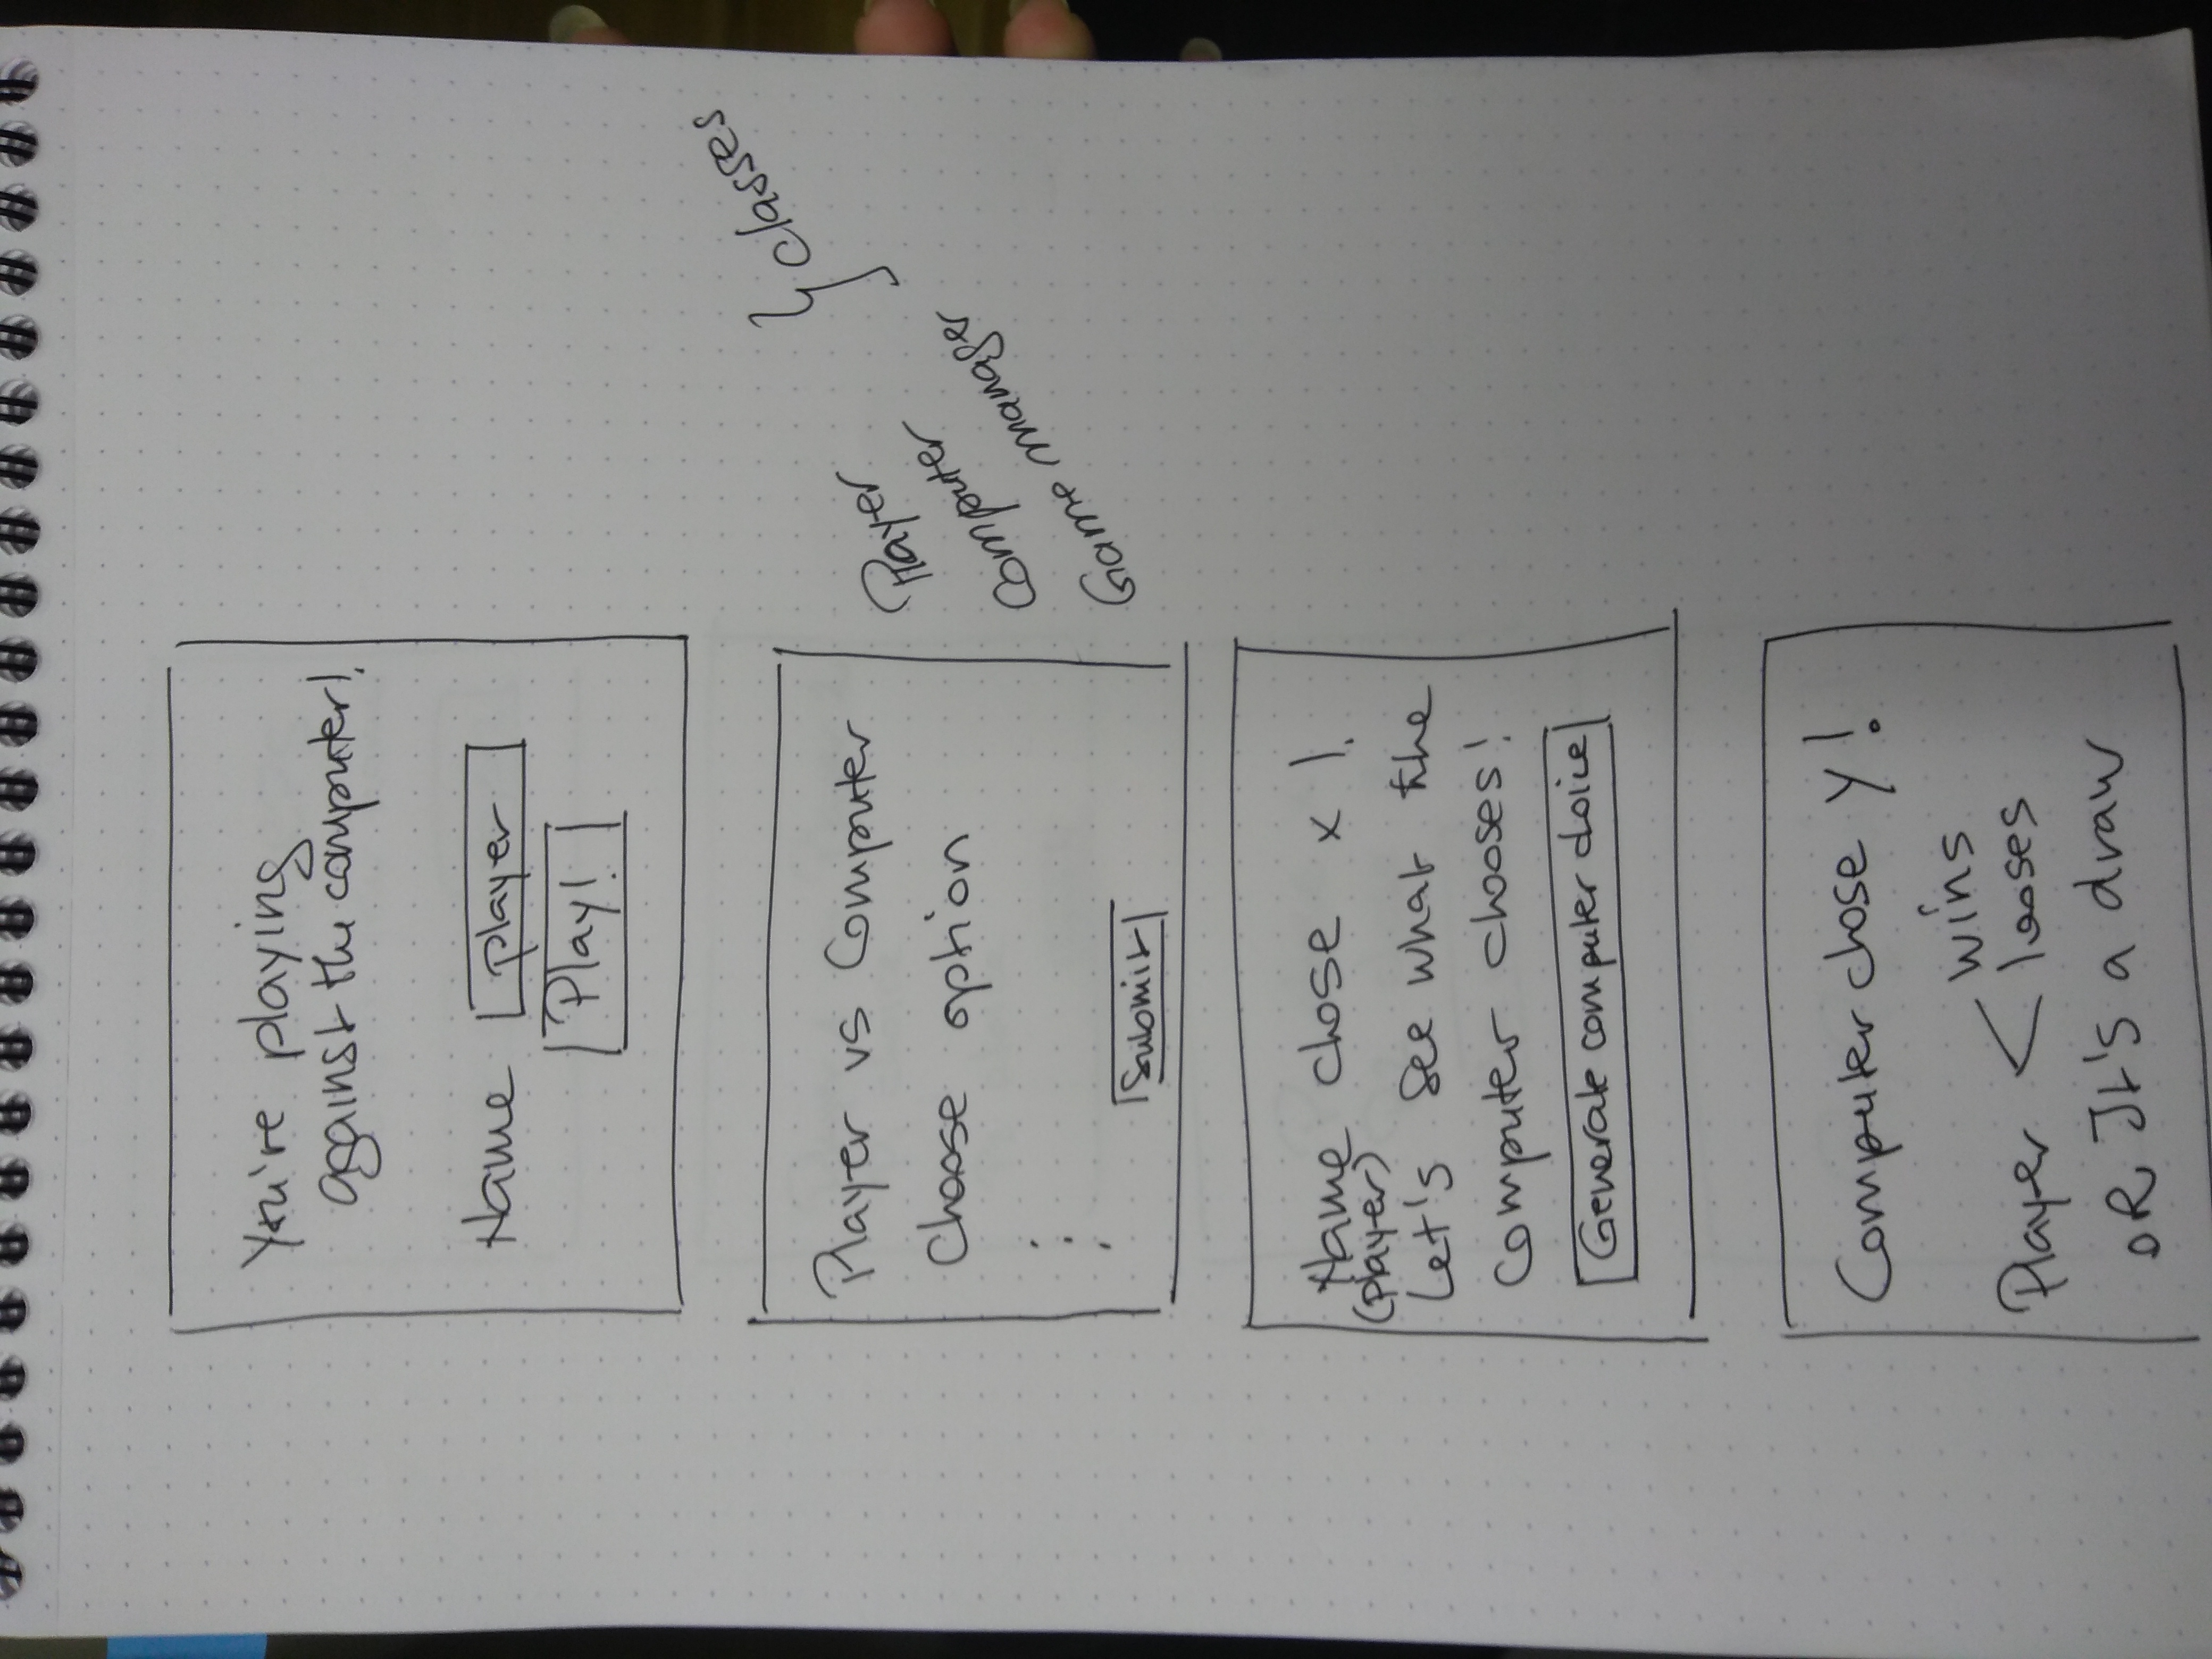 You're playing
against the computer!
Name player
Play!
Player vs Computer
Choose option
Submit
Player
Computer
Game manager
} classes
Name chose x !
(player)
Let's see what the
computer chooses!
Generate computer choice
Computer chose y!
wins
Player < looses
OR It's a draw